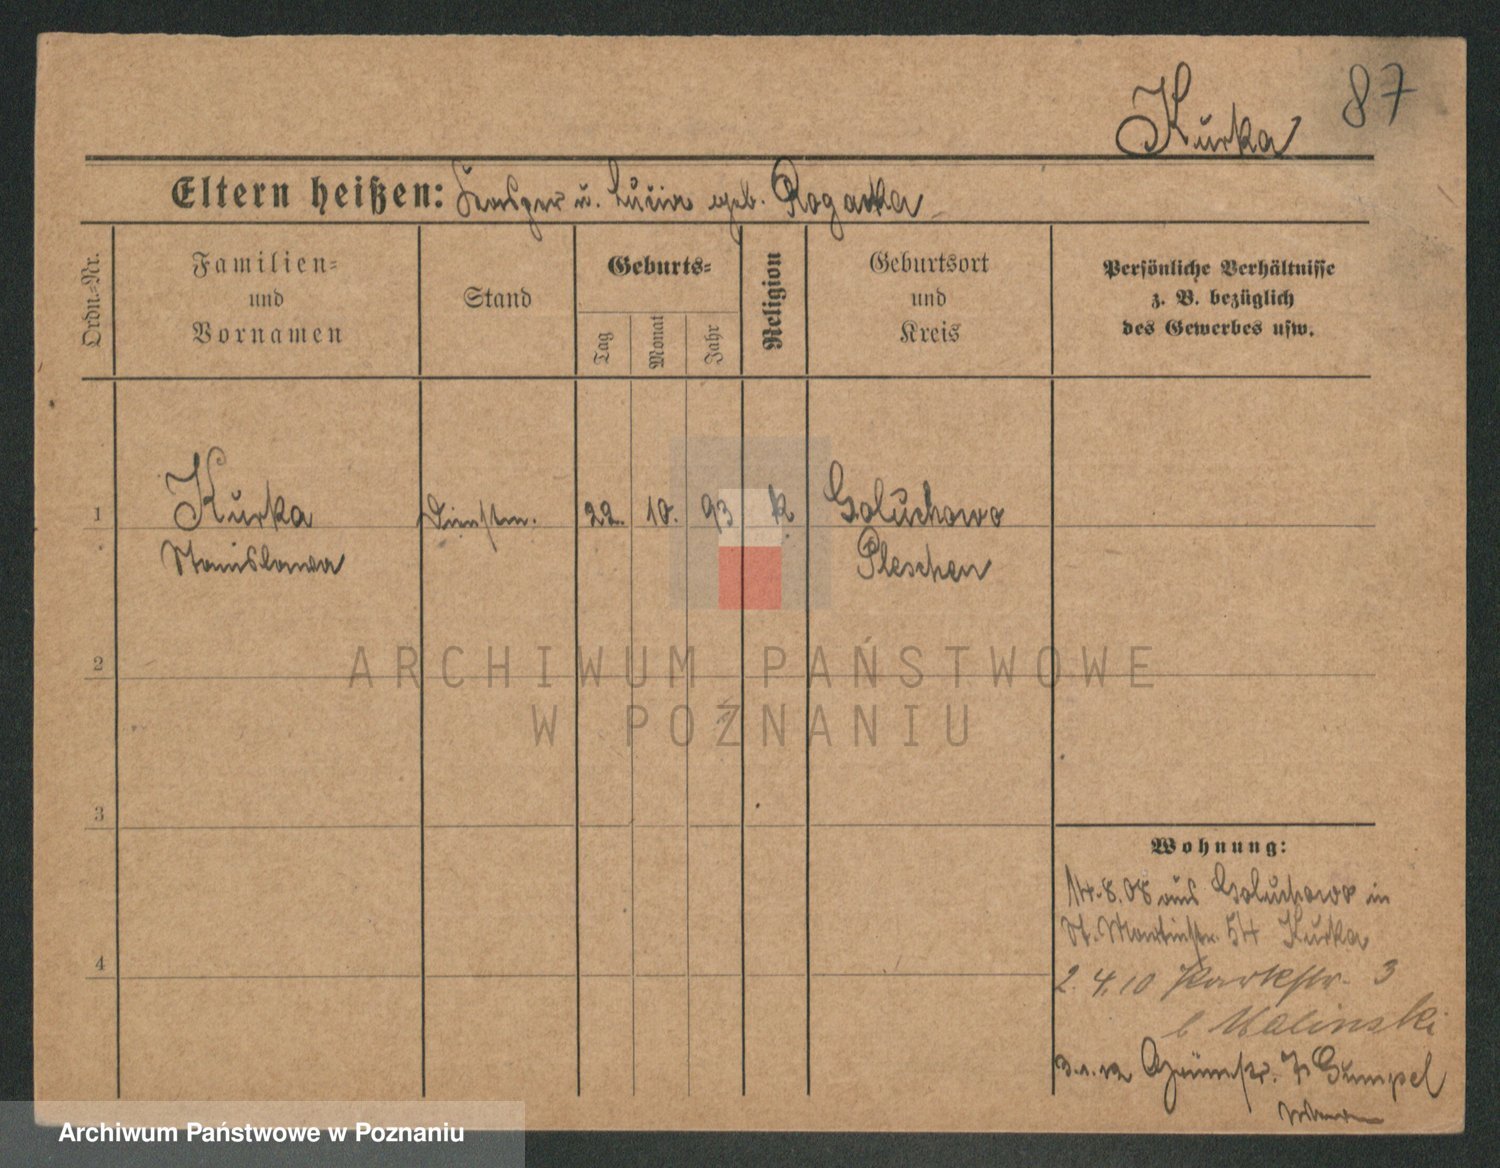 Kurka 87
Eltern heißen: Kasper u. Lucia geb. Rogacka
Ordn.-Nr.
Familien-
und
Vornamen
Stand
Geburts-
Tag
Monat
Jahr
Religion
Geburtsort
und
Kreis
Persönliche Verhältnisse
z. B. bezüglich
des Gewerbes usw.
1 Kurka Dienstm. 22. 10. 93 k Goluchowo
Stanislawa Pleschen
2
3
4
Wohnung:
14.8.08 aus Goluchowo in
St. Martinstr. 54 Kurka
2.4.10 Parkstr. 3
b Malinski
3.1.12 Grünstr. 7 Gumpel
ARCHIWUM PAŃSTWOWE
W POZNANIU
Archiwum Państwowe w Poznaniu